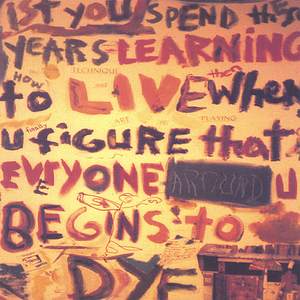 1ST YOU SPEND THESE
YEARS LEARNING
HOW TECHNIQUE and then
to LIVE when
ART PLAYING
finally
u figure that
EVERYONE AROUND u
BEGINS to
DYE